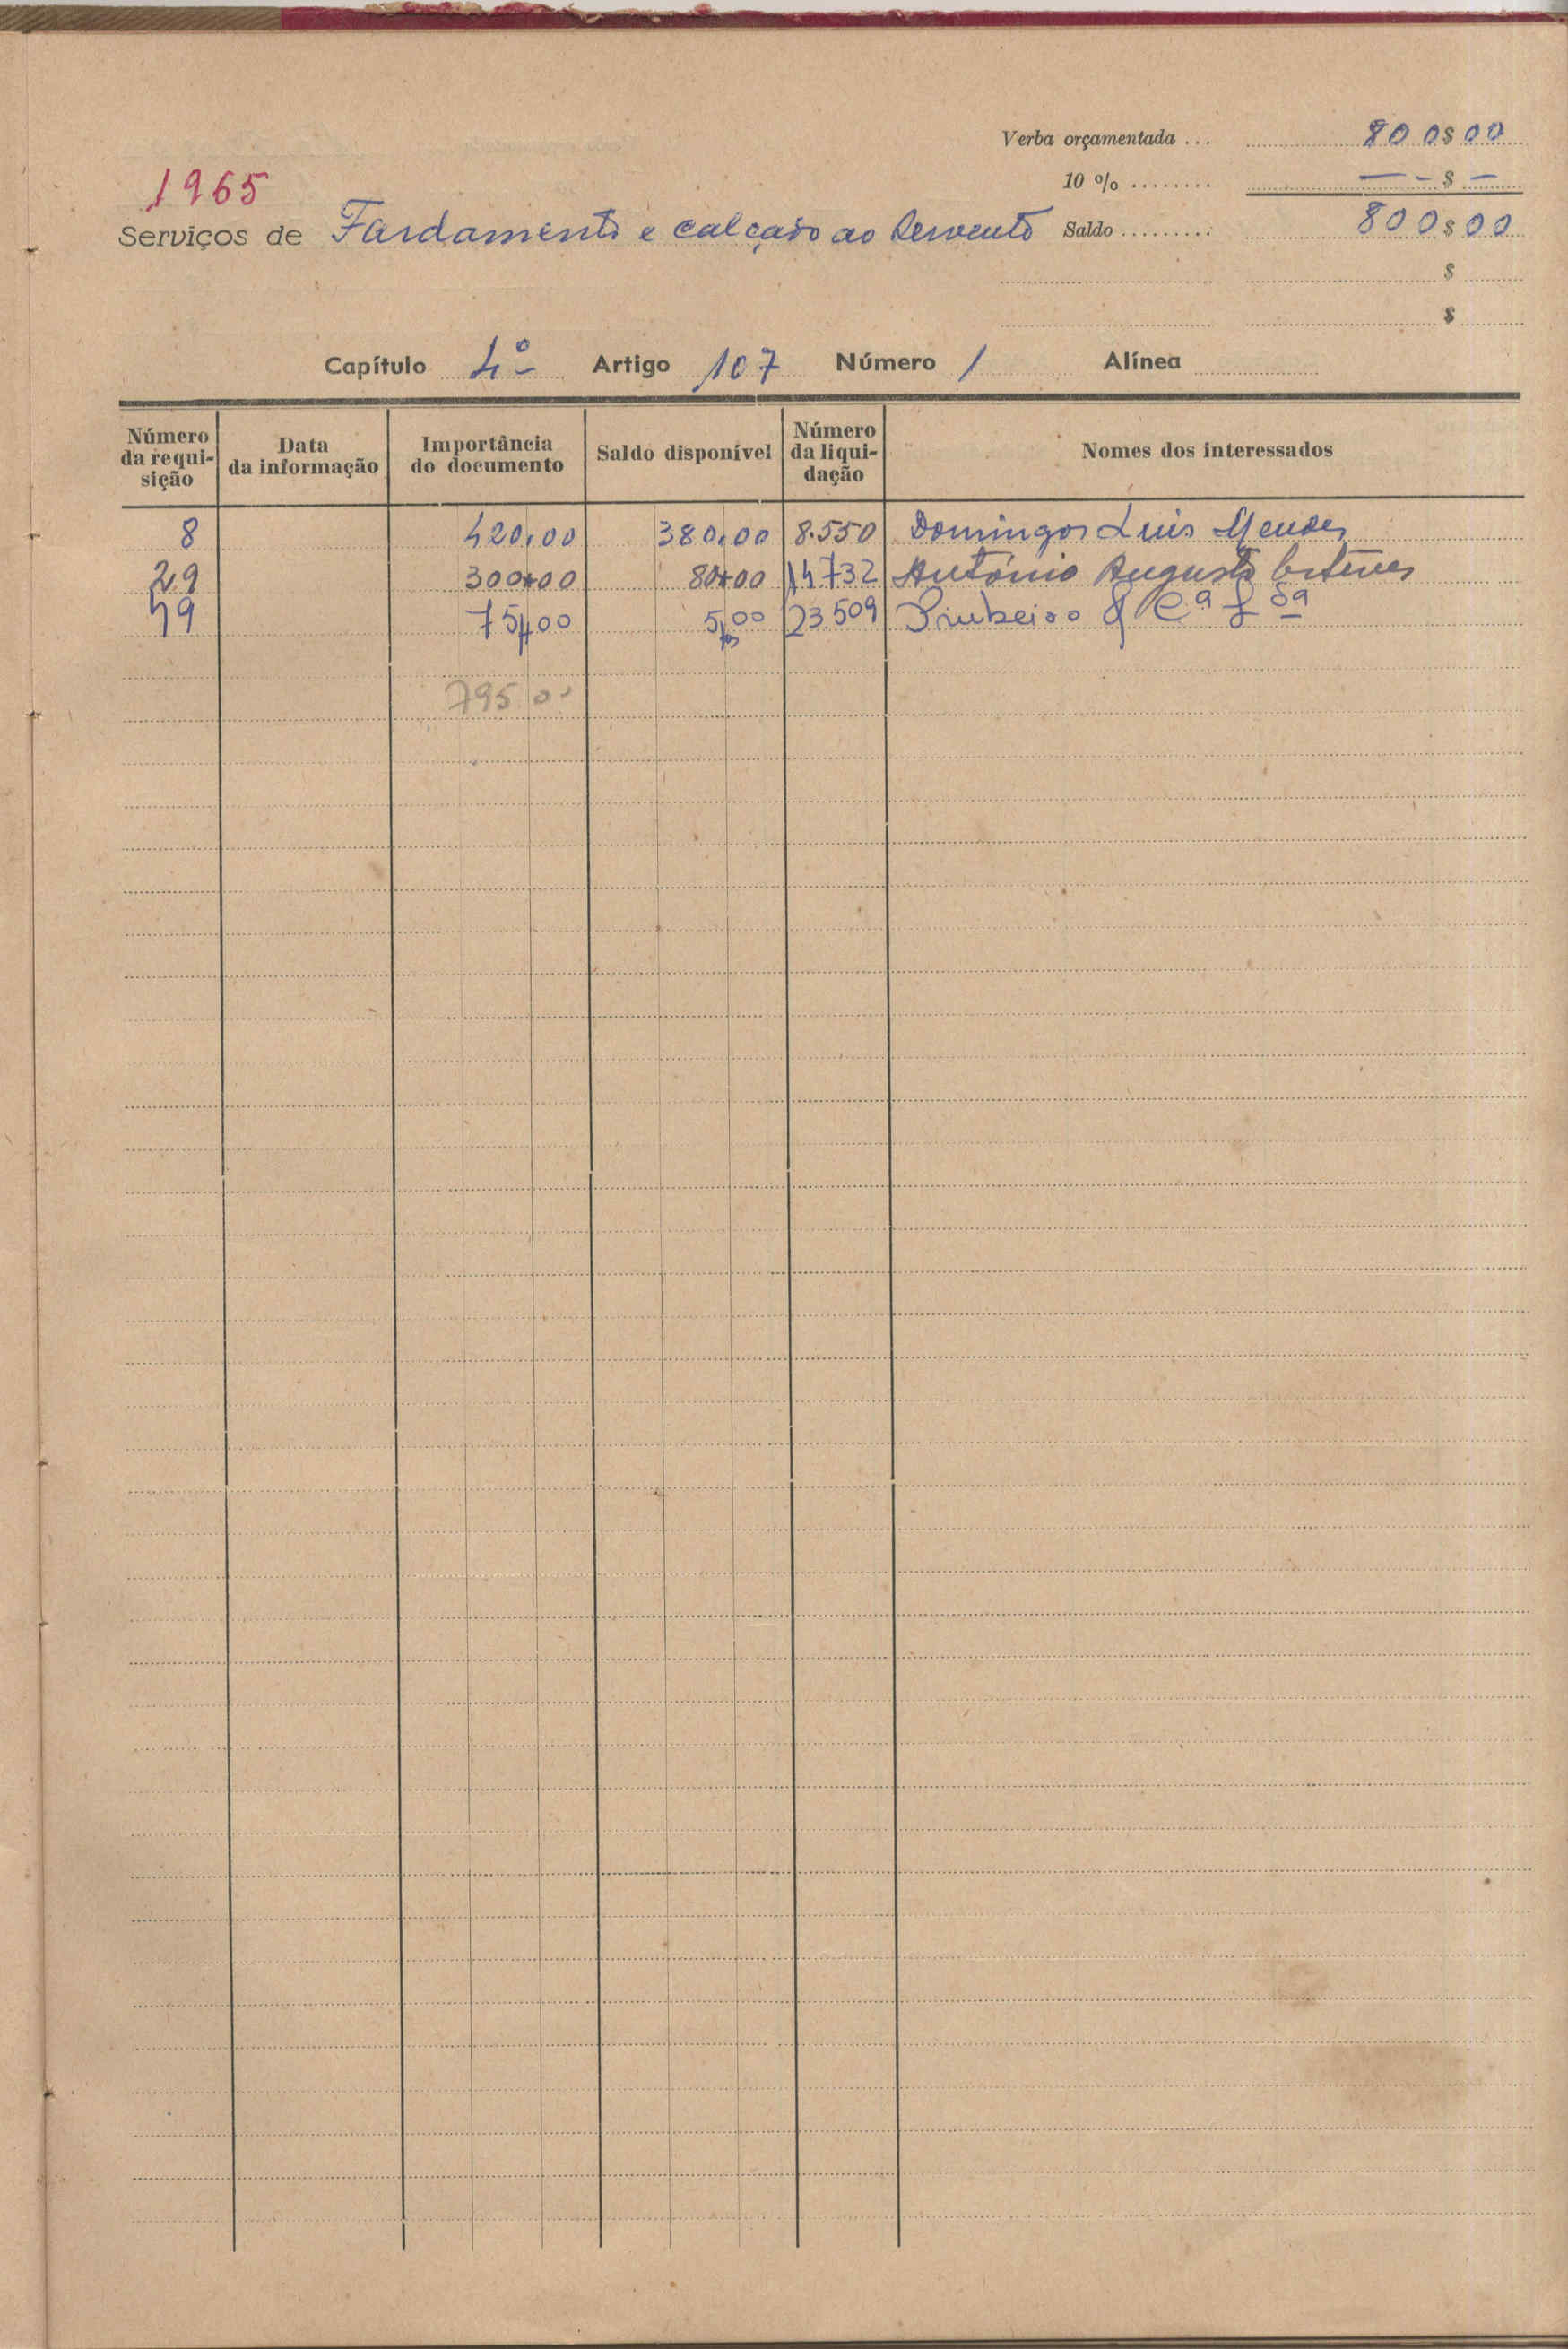 Verba orçamentada ... 800$00
1965
10 % ........ — - $ —
Serviços de Fardamento e calçado ao Servente Saldo ......... 800$00
$
$
Capítulo 4º Artigo 107 Número 1 Alínea
Número da requi-sição Data da informação Importância do documento Saldo disponível Número da liqui-dação Nomes dos interessados
8 420,00 380,00 8.550 Domingos Luis Mendes
29 300$00 80$00 14732 António Augusto Esteves
49 75$00 5$00 23.509 Pinheiro & Cª Lda
795,00